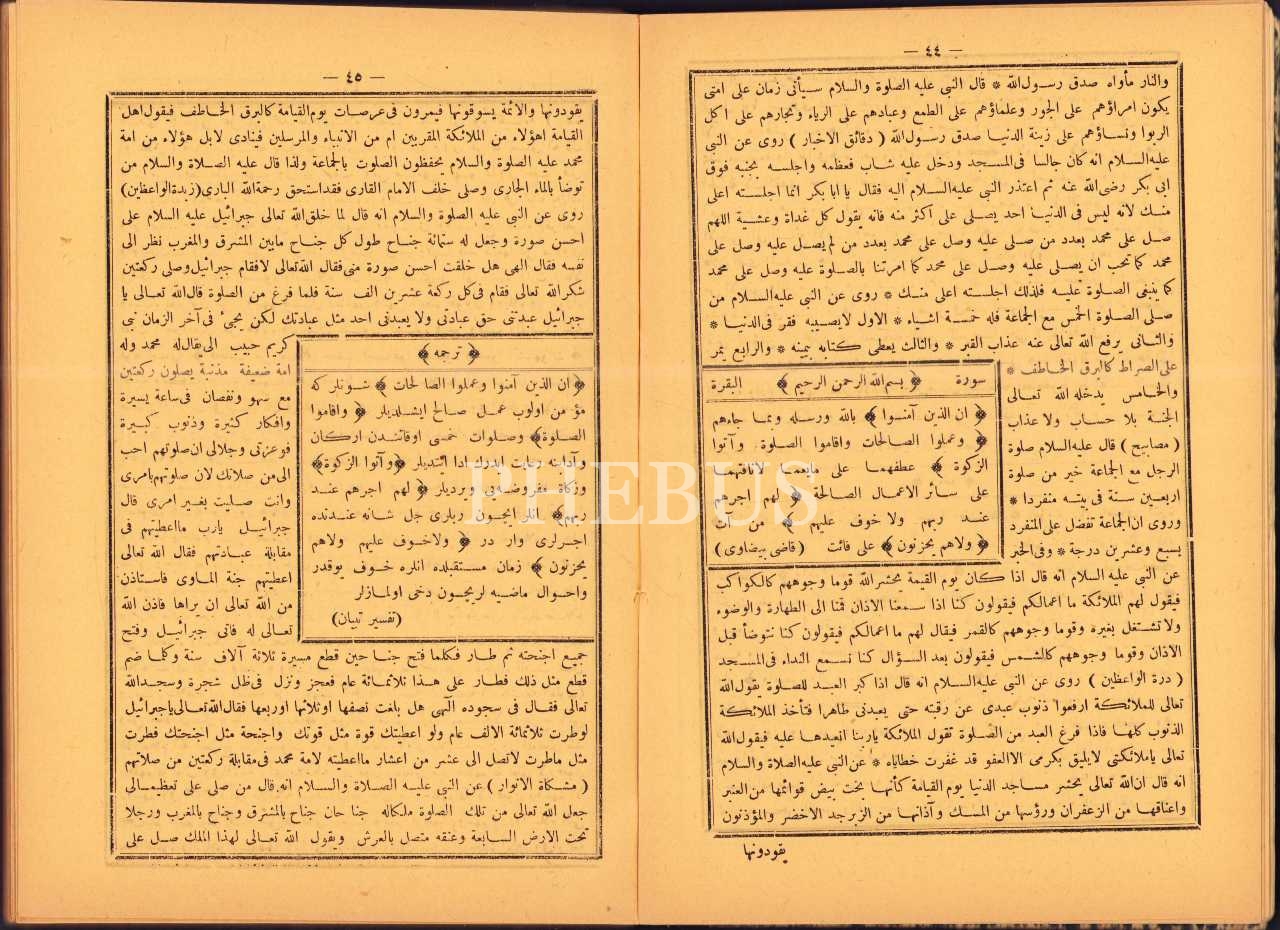 — ٤٤ —
والنار مأواه صدق رسول‌الله * قال النبي عليه الصلوة والسلام سيأتى زمان على امتى
يكون امراؤهم على الجور وعلماؤهم على الطمع وعبادهم على الرياء وتجارهم على اكل
الربوا ونساؤهم على زينة الدنيا صدق رسول‌الله ( دقائق الاخبار ) روى عن النبى
عليه‌السلام انه كان جالسا فى‌المسجد ودخل عليه شاب فعظمه واجلسه بجنبه فوق
ابى بكر رضى‌الله عنه ثم اعتذر النبى عليه‌السلام اليه فقال يا ابا بكر انما اجلسته اعلى
منك لانه ليس فى الدنيا احد يصلى على اكثر منه فانه يقول كل غداة وعشية اللهم
صل على محمد بعدد من صلى عليه وصل على محمد بعدد من لم‌يصل عليه وصل على
محمد كما تحب ان يصلى عليه وصل على محمد كما امرتنا بالصلوة عليه وصل على محمد
كما ينبغى الصلوة عليه فلذلك اجلسته اعلى منك * روى عن النبى عليه‌السلام من
صلى الصلوة الخمس مع الجماعة فله خمسة اشياء * الاول لايصيبه فقر فى‌الدنيا *
والثانى يرفع الله تعالى عنه عذاب القبر * والثالث يعطى كتابه بيمينه * والرابع يمر
على‌الصراط كالبرق الخاطف *
والخامس يدخله الله تعالى
الجنة بلا حساب ولا عذاب
( مصابيح ) قال عليه‌السلام صلوة
الرجل مع الجماعة خير من صلوة
اربعين سنة فى بيته منفردا *
وروى ان‌الجماعة تفضل على‌المنفرد
بسبع وعشرين درجة * وفى‌الخبر
سورة ﴿ بسم الله الرحمن الرحيم ﴾ البقرة
﴿ ان الذين آمنوا ﴾ بالله ورسله وبما جاءهم
﴿ وعملوا الصالحات واقاموا الصلوة وآتوا
الزكوة ﴾ عطفهما على مايعمهما لانافتهما
على سائر الاعمال الصالحة ﴿ لهم اجرهم
عند ربهم ولا خوف عليهم ﴾ من آت
﴿ ولاهم يحزنون ﴾ على فائت ( قاضى بيضاوى )
عن النبى عليه السلام انه قال اذا كان يوم القيمة يحشرالله قوما وجوههم كالكواكب
فيقول لهم الملائكة ما اعمالكم فيقولون كنا اذا سمعنا الاذان قمنا الى الطهارة والوضوء
ولانشتغل بغيره وقوما وجوههم كالقمر فيقال لهم ما اعمالكم فيقولون كنا نتوضأ قبل
الاذان وقوما وجوههم كالشمس فيقولون بعد السؤال كنا نسمع النداء فى‌المسجد
( درة الواعظين ) روى عن النبى عليه‌السلام انه قال اذا كبر العبد للصلوة يقول‌الله
تعالى للملائكة ارفعوا ذنوب عبدى عن رقبته حتى يعبدنى طاهرا فتأخذ الملائكة
الذنوب كلها فاذا فرغ العبد من الصلوة تقول الملائكة ياربنا انعيدها عليه فيقول‌الله
تعالى ياملائكتى لايليق بكرمى الاالعفو قد غفرت خطاياه * عن‌النبى عليه‌الصلاة والسلام
انه قال ان‌الله تعالى يحشر مساجد الدنيا يوم‌القيامة كأنها بخت بيض قوائمها من‌العنبر
واعناقها من الزعفران ورؤسها من المسك وآذانها من الزبرجد الاخضر والمؤذنون
يقودونها
— ٤٥ —
يقودونها والائمة يسوقونها فيمرون فى‌عرصات يوم‌القيامة كالبرق الخاطف فيقول‌اهل
القيامة اهؤلاء من الملائكة المقربين ام من الانبياء والمرسلين فينادى لابل هؤلاء من امة
محمد عليه الصلوة والسلام يحفظون الصلوت بالجماعة ولذا قال عليه الصلاة والسلام من
توضأ بالماء الجارى وصلى خلف الامام القارى فقداستحق رحمة‌الله البارى (زبدة‌الواعظين)
روى عن النبى عليه الصلوة والسلام انه قال لما خلق‌الله تعالى جبرائيل عليه السلام على
احسن صورة وجعل له ستمائة جناح طول كل جناح مابين المشرق والمغرب نظر الى
نفسه فقال الهى هل خلقت احسن صورة منى‌فقال الله‌تعالى لافقام جبرائيل‌وصلى ركعتين
شكرالله تعالى فقام فى‌كل ركعة عشرين الف سنة فلما فرغ من الصلوة قال‌الله تعالى يا
جبرائيل عبدتنى حق عبادتى ولا يعبدنى احد مثل عبادتك لكن يجئ فى آخر الزمان نبى
كريم حبيب الى‌يقال‌له محمد وله
امة ضعيفة مذنبة يصلون ركعتين
مع سهو ونقصان فى‌ساعة يسيرة
وافكار كثيرة وذنوب كبيرة
فوعزتى وجلالى ان‌صلوتهم احب
الى‌من صلاتك لان صلوتهم‌بامرى
وانت صليت بغير امرى قال
جبرائيل يارب مااعطيتهم فى
مقابلة عبادتهم فقال الله تعالى
اعطيتهم جنة المأوى فاستأذن
من الله تعالى ان يراها فاذن الله
تعالى له فاتى جبرائيل وفتح
﴿ ترجمه ﴾
﴿ ان الذين آمنوا وعملوا الصالحات ﴾ شونلر كه
مؤمن اولوب عمل صالح ايشلديلر ﴿ واقاموا
الصلوة﴾ وصلوات خمسى اوقاتندن اركان
وآدابنه رعايت ايدرك ادا ايتديلر ﴿وآتوا الزكوة﴾
وزكاة مفروضه‌يى ويرديلر ﴿ لهم اجرهم عند
ربهم﴾ انلر ايچون ربلرى جل شانه عندنده
اجرلرى وار در ﴿ ولاخوف عليهم ولاهم
يحزنون ﴾ زمان مستقبلده انلره خوف يوقدر
واحوال ماضيه لريچون دخى اولمازلر
(تفسير تبيان)
جميع اجنحته ثم طار فكلما فتح جناحين قطع مسيرة ثلاثة آلاف سنة وكلما ضم
قطع مثل ذلك فطار على هذا ثلاثمائة عام فعجز ونزل فى‌ظل شجرة وسجدالله
تعالى فقال فى سجوده آلهى هل بلغت نصفها اوثلاثها اوربعها فقال‌الله‌تعالى‌ياجبرائيل
لوطرت ثلاثمائة الالف عام ولو اعطيتك قوة مثل قوتك واجنحة مثل اجنحتك فطرت
مثل ماطرت لاتصل الى عشر من اعشار مااعطيته لامة محمد فى‌مقابلة ركعتين من صلاتهم
( مشكاة الانوار ) عن النبى عليه الصلاة والسلام انه.قال من صلى على تعظيما‌لى
جعل الله تعالى من تلك الصلوة ملكاله جناحان جناح بالمشرق وجناح بالمغرب ورجلا
تحت الارض السابعة وعنقه متصل بالعرش ويقول الله تعالى لهذا الملك صل على
PHEBUS